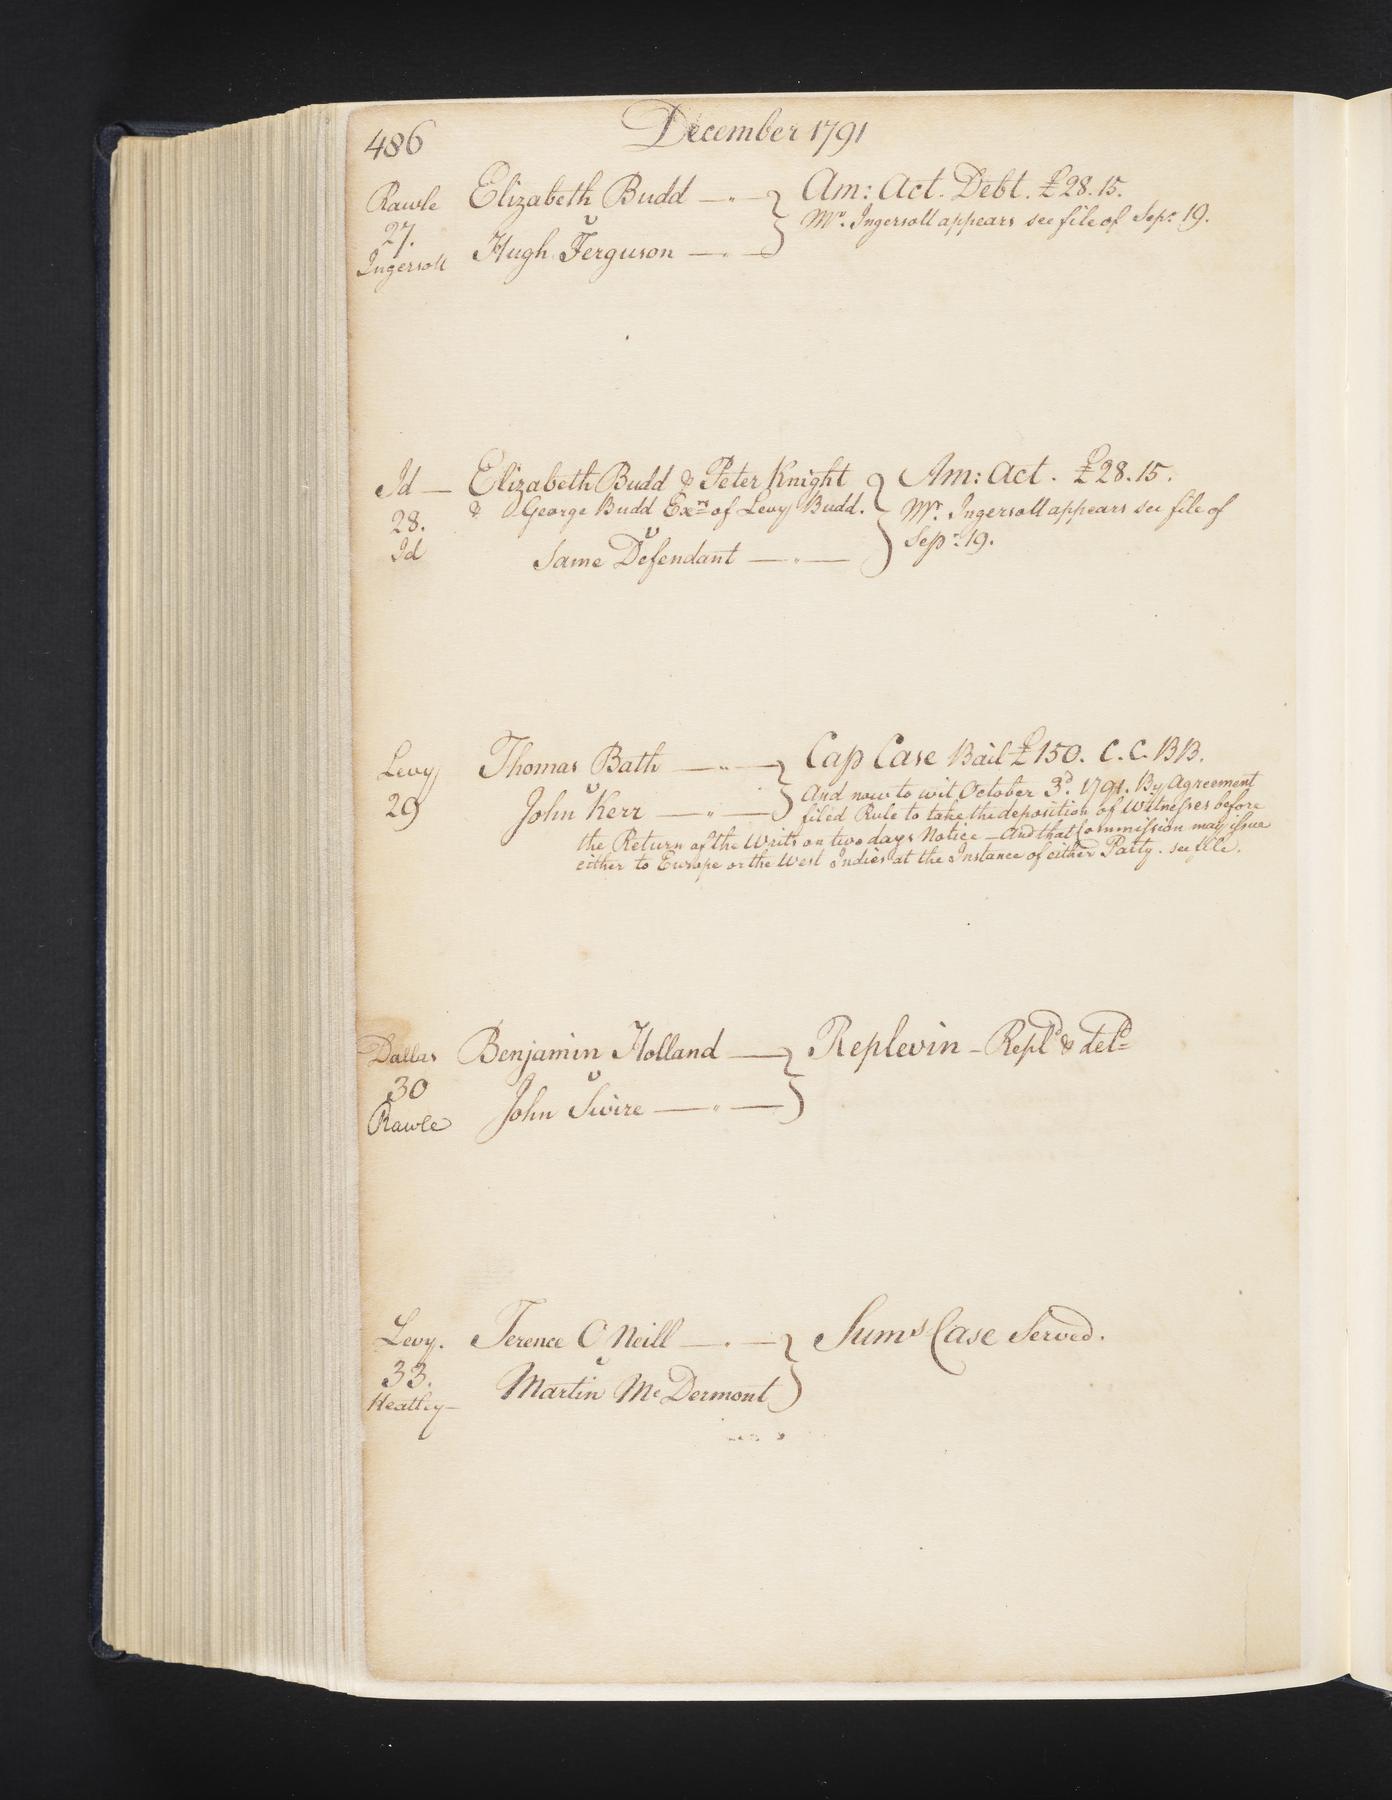 486
December 1791
Rawle Elizabeth Budd — " — } Am: Act. Debt. £28.15.
27. v Mr. Ingersoll appears see file of Sepr. 19.
Ingersoll Hugh Ferguson — " —
Id — Elizabeth Budd & Peter Knight } Am: Act. £28.15.
28. & George Budd Exrs of Levy Budd. Mr. Ingersoll appears see file of
v Sepr. 19.
Id Same Defendant — " —
Levy Thomas Bath — " — } Cap Case Bail £150. C.C. BB.
29 v And now to wit October 3d. 1791. By Agreement
John Kerr — " — filed Rule to take the deposition of Witnesses before
the Return of the Writs on two days Notice — And that Commission may issue
either to Europe or the West Indies at the Instance of either Party. see file.
Dallas Benjamin Holland — } Replevin - Repld & deld
30 v
Rawle John Swire — " —
Levy. Terence O Neill — " — } Sums Case Served.
33. v
Heatley — Martin Mc Dermont